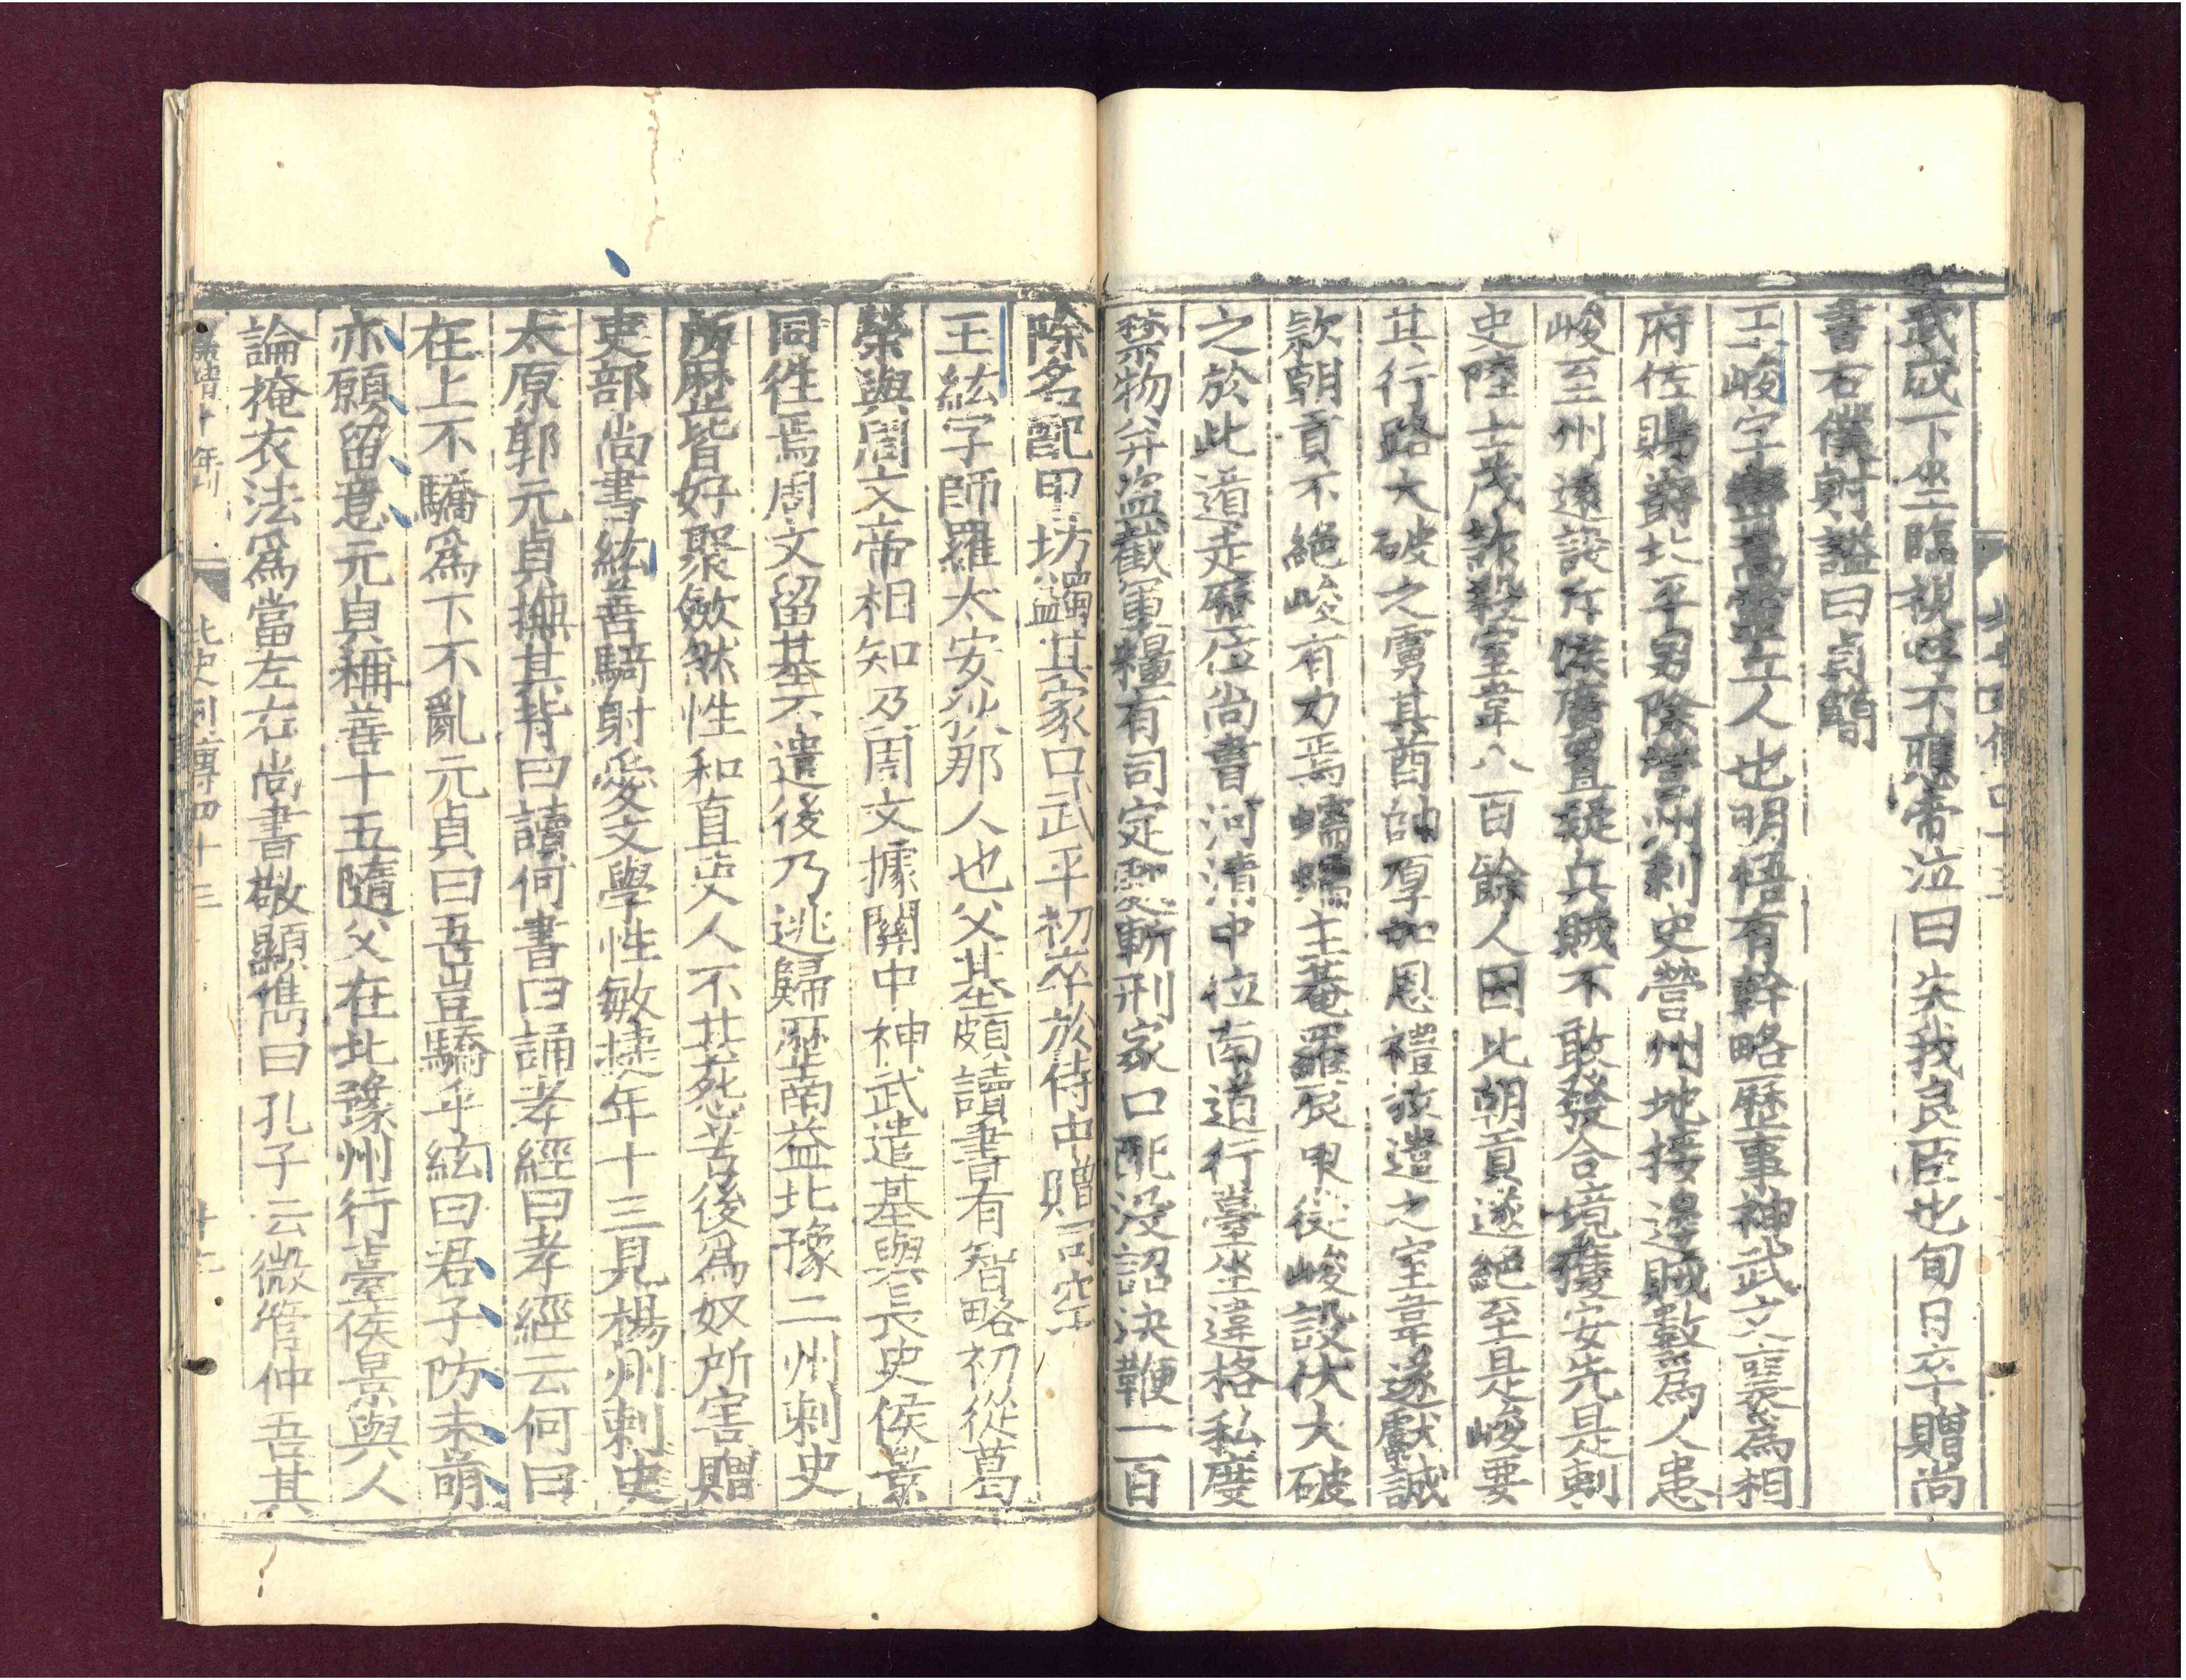 武成下坐臨視呼不應帝泣曰失我良臣也旬日卒贈尚
書右僕射謚曰貞簡
王峻字巒嵩靈丘人也明悟有幹略歷事神武文襄爲相
府佐賜爵北平男除營州刺史營州地接邊賊數爲人患
峻至州遠設斥候廣置疑兵賊不敢發合境獲安先是刺
史陸士茂詐殺室韋八百餘人因此朝貢遂絕至是峻要
其行路大破之虜其酋帥厚加恩禮放遣之室韋遂獻誠
欵朝貢不絕峻有力焉蠕蠕主菴羅辰東徙峻設伏大破
之於此道走歷位尚書河清中位南道行臺坐違格私度
禁物并盜截軍糧有司定處斬刑家口配沒詔決鞭一百
除名配甲坊蠲其家口武平初卒於侍中贈司空
王紘字師羅太安狄那人也父基頗讀書有智略初從葛
榮與周文帝相知及周文據關中神武遣基與長史侯景
同徃焉周文留基不遣後乃逃歸歷南益北豫二州刺史
所歷皆好聚斂然性和直吏人不甚患苦後爲奴所害贈
吏部尚書紘善騎射愛文學性敏捷年十三見楊州刺史
太原郭元貞撫其背曰讀何書曰誦孝經曰孝經云何曰
在上不驕爲下不亂元貞曰吾豈驕乎紘曰君子防未萌
亦願留意元貞稱善十五隨父在北豫州行臺侯景與人
論掩衣法爲當左右尚書敬顯儁曰孔子云微管仲吾其
北史列傳四十三